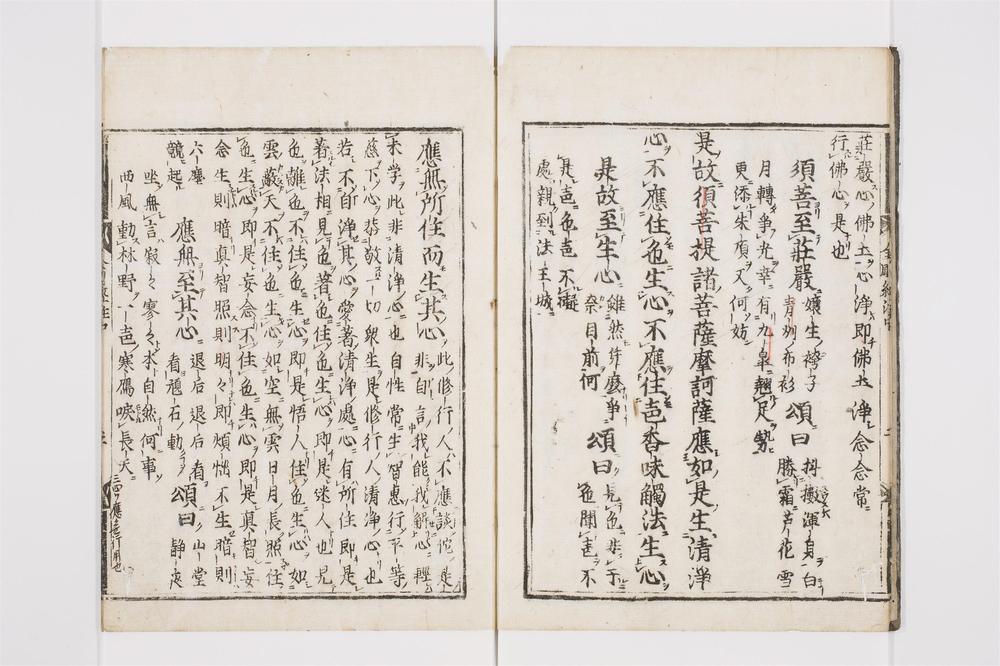 莊嚴心佛土心淨即佛土淨念念常
行佛心是也
須菩至莊嚴 孃生袴子 青州布衫 頌曰 抖擻渾身白 勝霜芦花雪
月轉爭光幸有九皐翹足勢
更添朱頂又何妨
是故須菩提諸菩薩摩訶薩應如是生清淨
心不應住色生心不應住声香味觸法生心
是故至生心 雖然恁麼爭 奈目前何 頌曰 見色非于 色聞声不
是声色声不礙
處親到法王城
應無所住而生其心 此修行人不應談他是
非自言我能我解心輕
末学此非清淨心也自性常生智惠行平等
慈下心恭敬一切衆生是修行人清淨心也
若不自淨其心愛著清淨處心有所住即是
著法相見色著色住色生心即是迷人也見
色離色不住色生心即是悟人住色生心如
雲蔽天不住色生心如空無雲日月長照住
色生心即是妄念不住色生心即是真智妄
念生則暗真智照則明明即煩惱不生暗則
六塵
競起 應無至其心 退后退后看 看頑石動 頌曰 山堂 静夜
坐無言寂々寥々本自然何事
西風動林野一声寒鴈唳長天